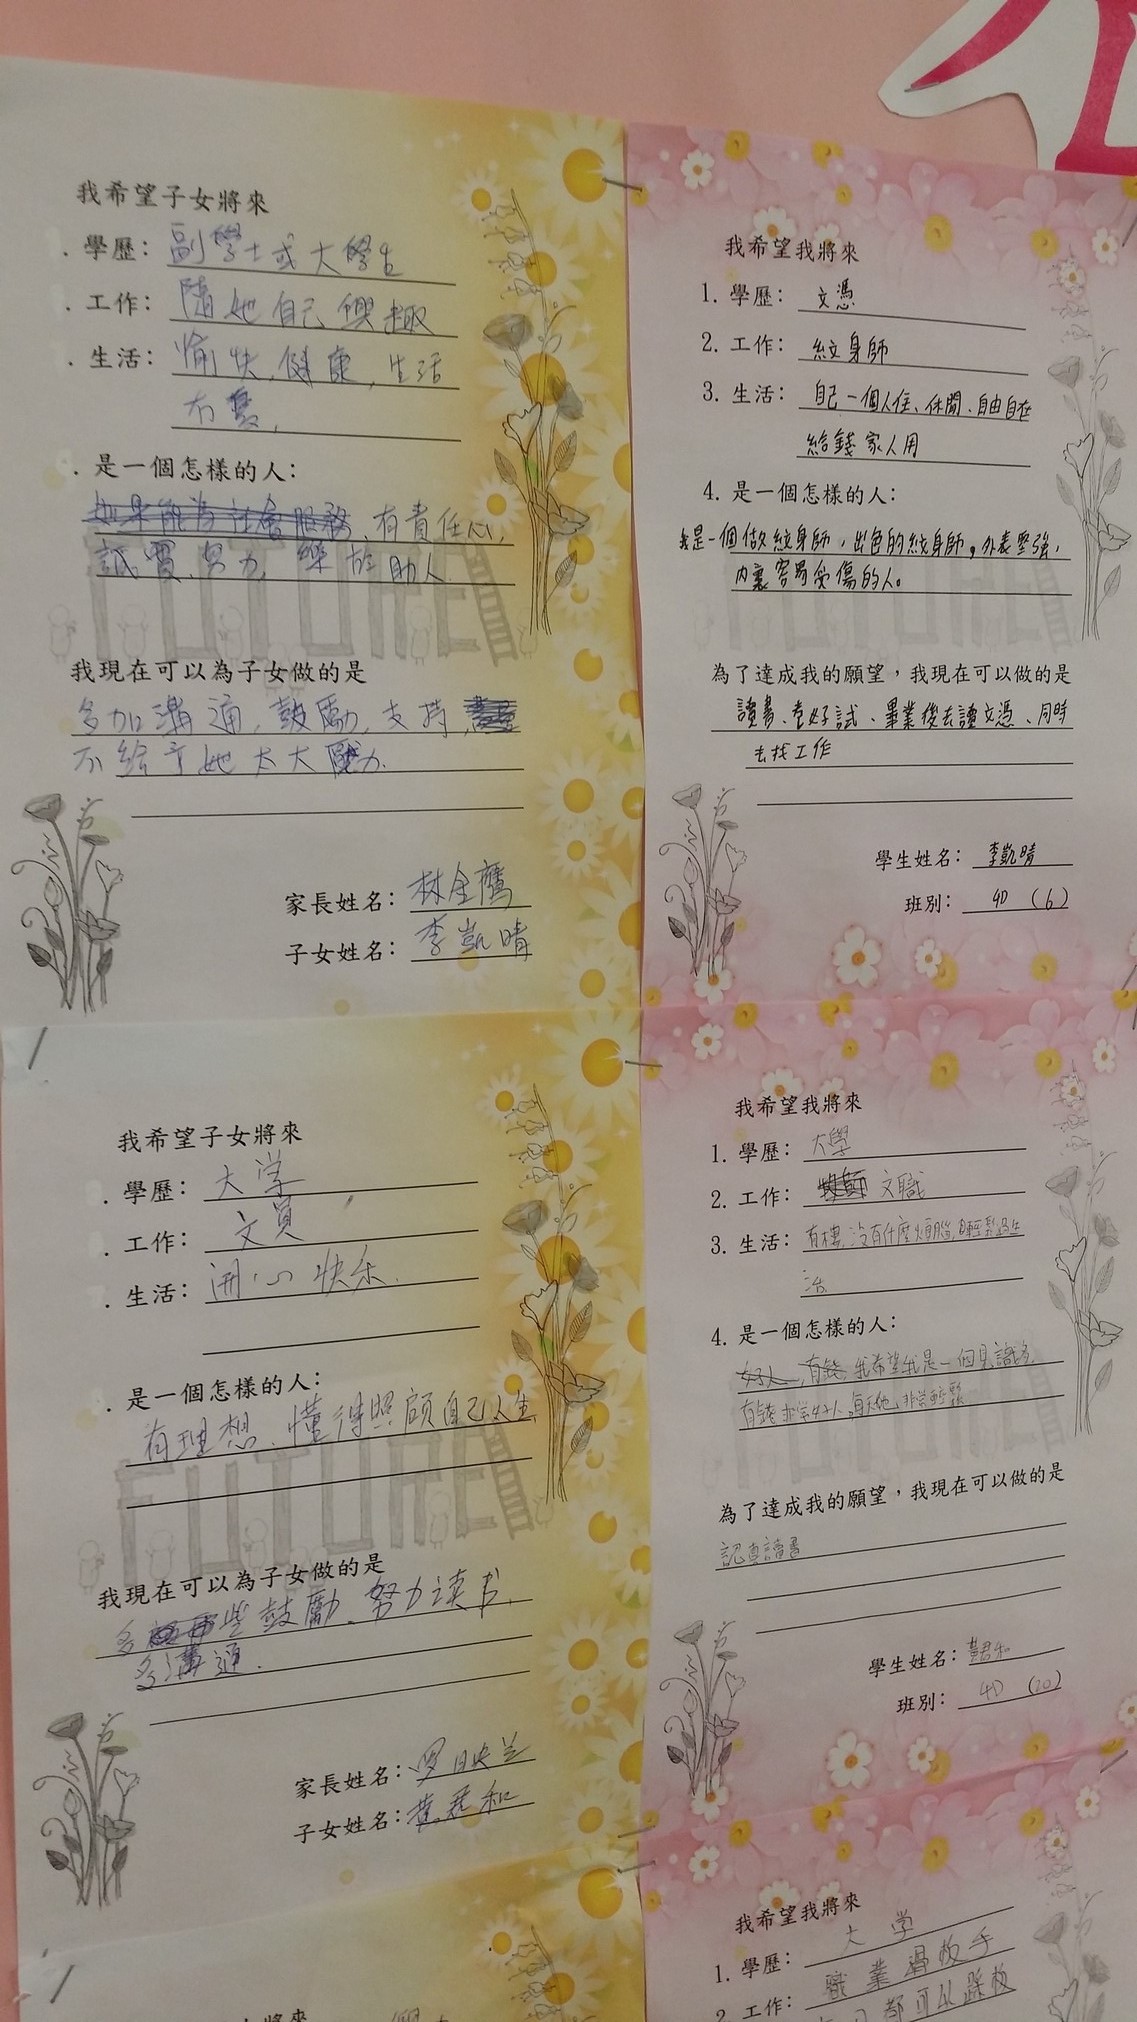 我希望子女將來
學歷：副學士或大學生
工作：隨她自己興趣
生活：愉快,健康,生活
是一個怎樣的人：
如果能為社會服務、有責任心,
誠實,努力,樂於助人.
我現在可以為子女做的是
多加溝通,鼓勵,支持,
不給予她太大壓力.
家長姓名：林全鷹
子女姓名：李凱晴
我希望我將來
1. 學歷：文憑
2. 工作：紋身師
3. 生活：自己一個人住、休閒、自由自在
給錢家人用
4. 是一個怎樣的人：
我是一個做紋身師，出色的紋身師，外表堅強，
內裏容易受傷的人。
為了達成我的願望，我現在可以做的是
讀書、考好試、畢業後去讀文憑、同時
去找工作
學生姓名：李凱晴
班別：4D (6)
我希望子女將來
學歷：大学
工作：文員
生活：開心快乐.
是一個怎樣的人：
有理想、懂得照顧自己人生
我現在可以為子女做的是
多些鼓勵、努力读书,
多溝通.
家長姓名：罗映兰
子女姓名：黃君和
我希望我將來
1. 學歷：大學
2. 工作：文職
3. 生活：有樓,沒有什麼煩腦,輕鬆過生
活
4. 是一個怎樣的人：
好人,有錢,我希望我是一個見識多,
有錢,非常好人,每天也非常輕鬆
為了達成我的願望，我現在可以做的是
認真讀書
學生姓名：黃君和
班別：4D (20)
我希望我將來
1. 學歷：大学
2. 工作：職業滑板手
都可以踩板